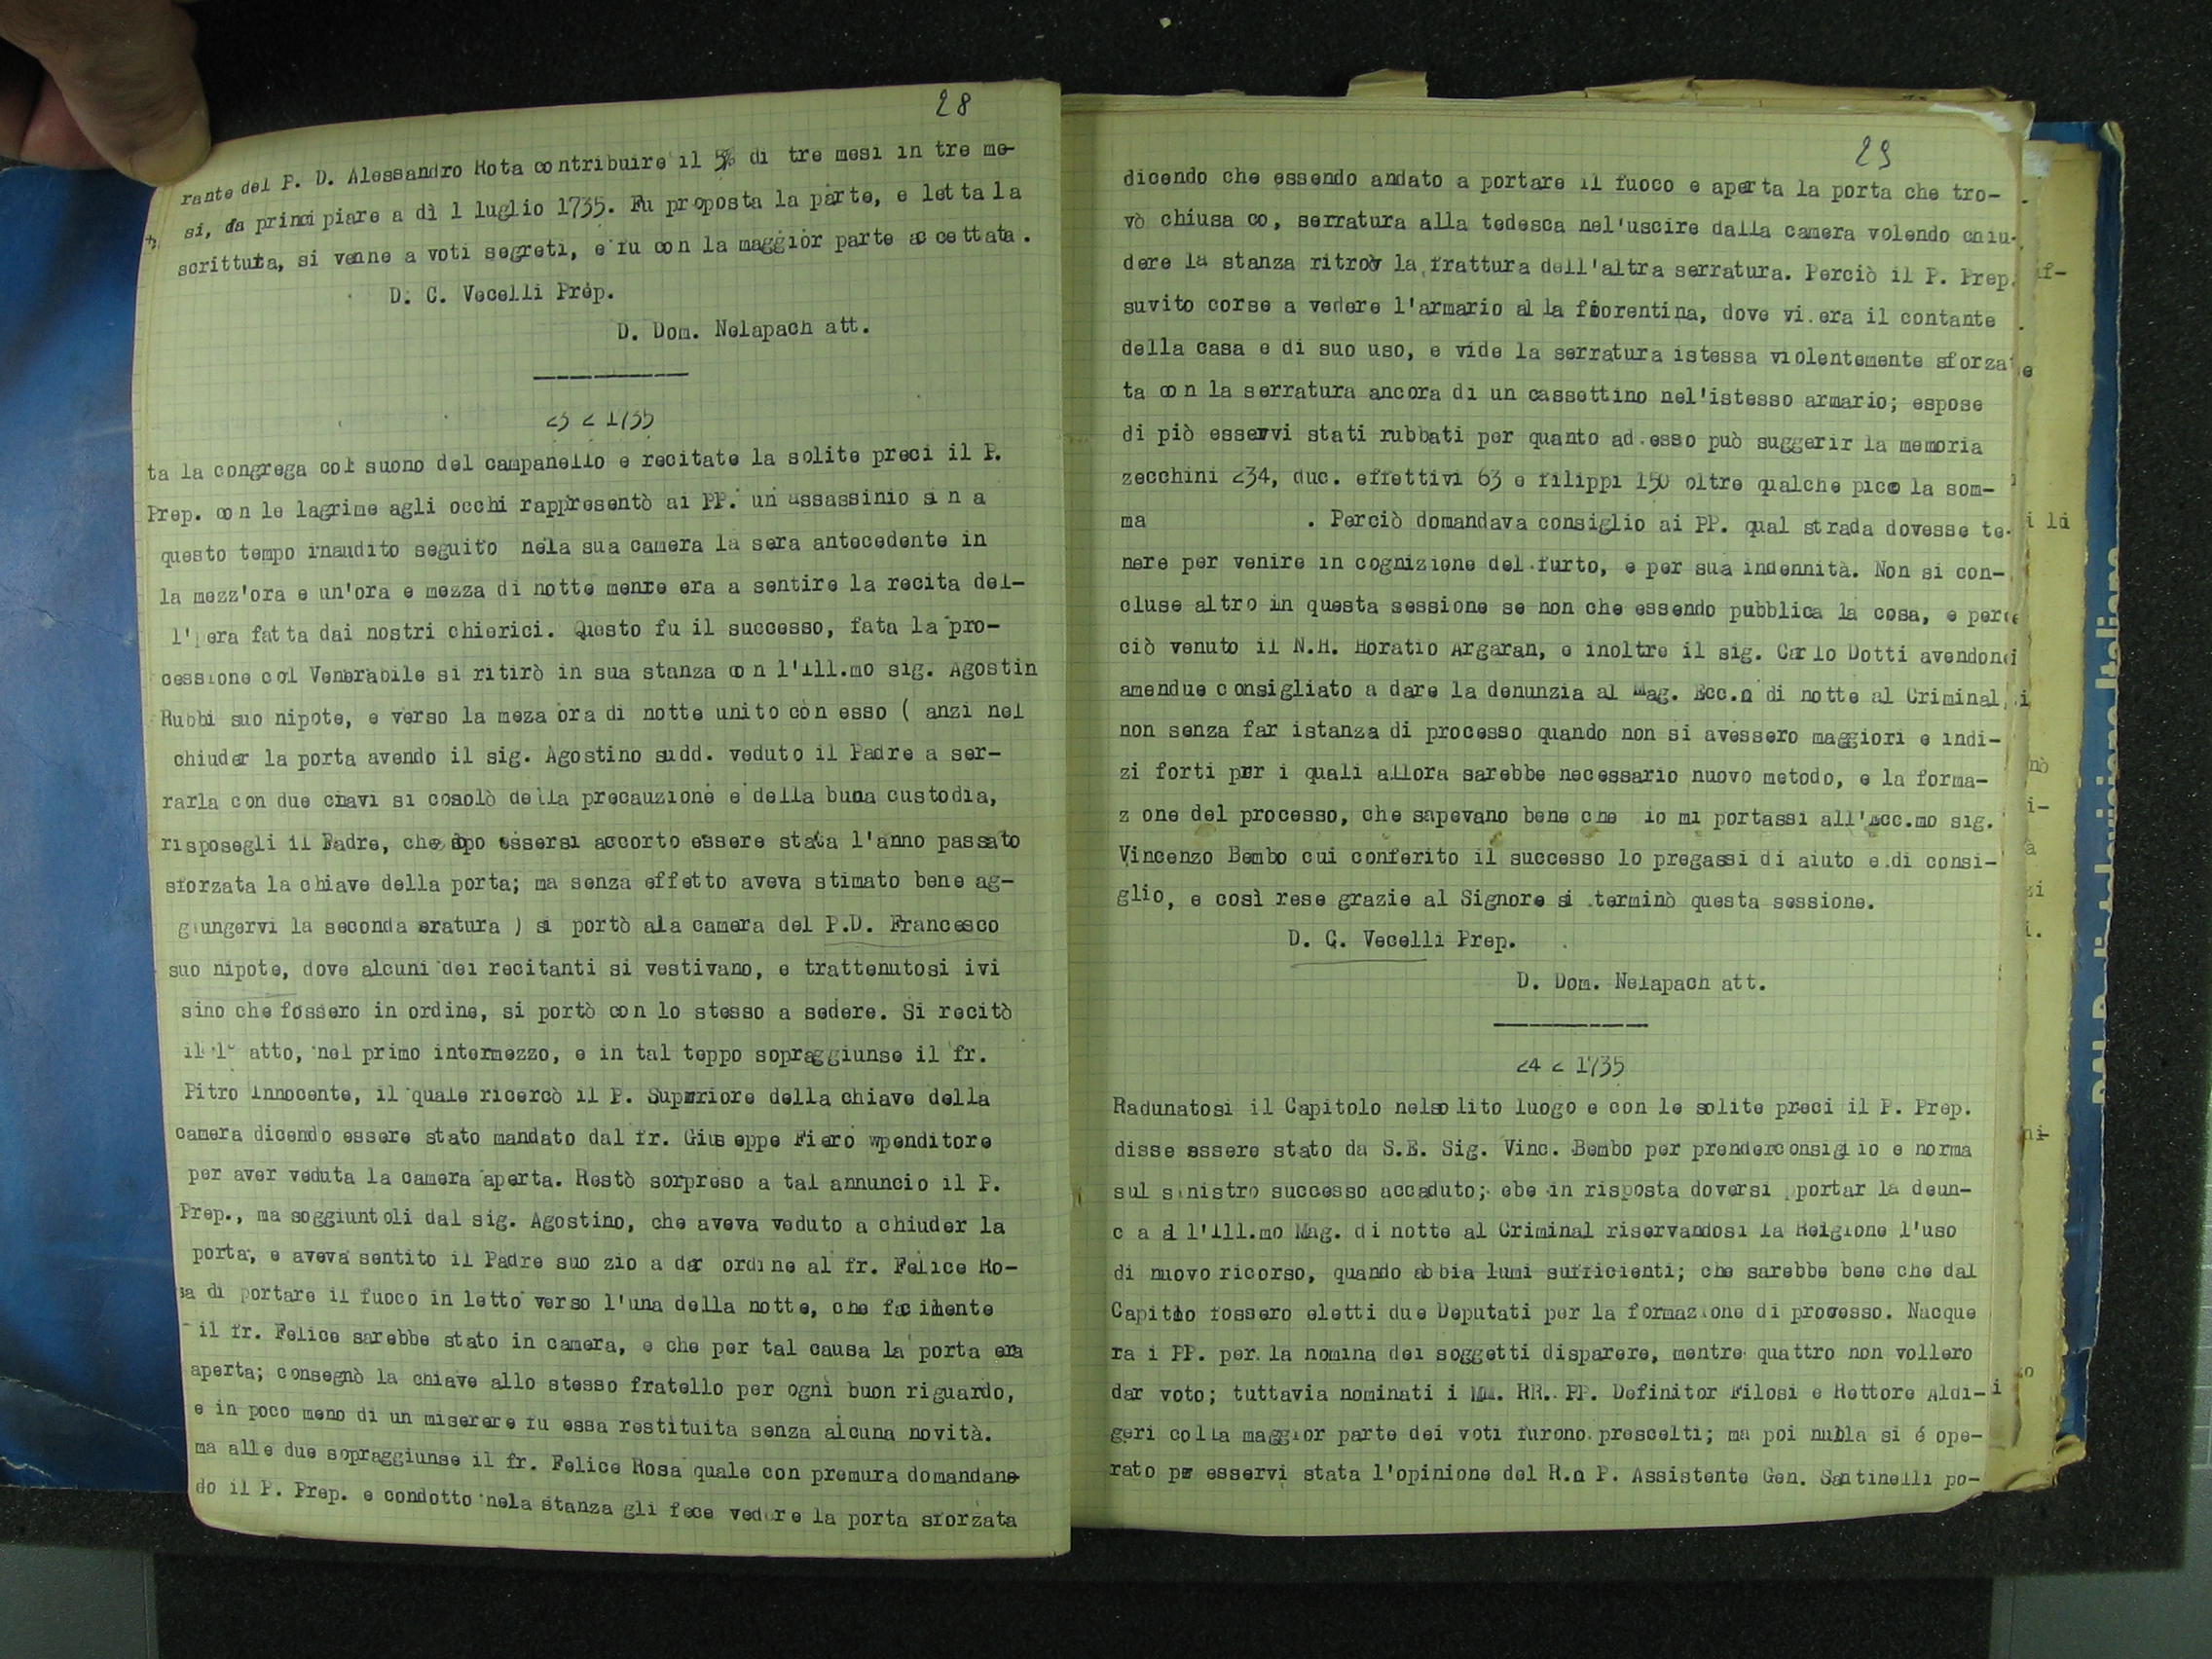 28
rante del P. D. Alessandro Rota contribuire il 5% di tre mesi in tre me-
si, da principiare a dì 1 luglio 1735. Fu proposta la parte, e letta la
scrittura, si venne a voti segreti, e fu con la maggior parte accettata.
D. C. Vecelli Prep.
D. Dom. Nelapach att.
23 2 1735
ta la congrega col suono del campanello e recitate la solite preci il P.
Prep. con le lagrime agli occhi rappresentò ai PP. un assassinio sin a
questo tempo inaudito seguito nela sua camera la sera antecedente in
la mezz'ora e un'ora e mezza di notte menre era a sentire la recita del-
l'pera fatta dai nostri chierici. Questo fu il successo, fata la pro-
cessione col Venerabile si ritirò in sua stanza con l'Ill.mo sig. Agostin
Rubbi suo nipote, e verso la meza ora di notte unito con esso ( anzi nel
chiuder la porta avendo il sig. Agostino sudd. veduto il Padre a ser-
rarla con due chavi si cosolò della precauzione e della buna custodia,
risposegli il Padre, che dopo essersi accorto essere stata l'anno passato
sforzata la chiave della porta; ma senza effetto aveva stimato bene ag-
giungervi la seconda eratura ) si portò ala camera del P.D. Francesco
suo nipote, dove alcuni dei recitanti si vestivano, e trattenutosi ivi
sino che fossero in ordine, si portò con lo stesso a sedere. Si recitò
il 1° atto, nel primo intermezzo, e in tal teppo sopraggiunse il fr.
Pitro Innocente, il quale ricercò il P. Superiore della chiave della
camera dicendo essere stato mandato dal fr. Giuseppe Fiero wpenditore
per aver veduta la camera aperta. Restò sorpreso a tal annuncio il P.
Prep., ma soggiuntoli dal sig. Agostino, che aveva veduto a chiuder la
porta, e aveva sentito il Padre suo zio a dar ordine al fr. Felice Ro-
sa di portare il fuoco in letto verso l'una della notte, che facilmente
il fr. Felice sarebbe stato in camera, e che per tal causa la porta era
aperta; consegnò la chiave allo stesso fratello per ogni buon riguardo,
e in poco meno di un miserere fu essa restituita senza alcuna novità.
ma alle due sopraggiunse il fr. Felice Rosa quale con premura domandane
do il P. Prep. e condotto nela stanza gli fece vedere la porta sforzata
29
dicendo che essendo andato a portare il fuoco e aperta la porta che tro-
vò chiusa co, serratura alla tedesca nel'uscire dalla camera volendo chiu-
dere la stanza ritroò la frattura dell'altra serratura. Perciò il P. Prep.
suvito corse a vedere l'armario alla fiorentina, dove vi era il contante
della casa e di suo uso, e vide la serratura istessa violentemente sforza
ta con la serratura ancora di un cassettino nel'istesso armario; espose
di piò esservi stati rubbati per quanto ad esso può suggerir la memoria
zecchini 234, duc. effettivi 63 e filippi 150 oltre qualche pico la som-
ma . Perciò domandava consiglio ai PP. qual strada dovesse te-
nere per venire in cognizione del furto, e per sua indennità. Non si con-
cluse altro in questa sessione se non che essendo pubblica la cosa, e per
ciò venuto il N.H. Horatio Argaran, e inoltre il sig. Carlo Dotti avendo
amendue consigliato a dare la denunzia al Mag. Ecc.o di notte al Criminal,
non senza far istanza di processo quando non si avessero maggiori e indi-
zi forti per i quali allora sarebbe necessario nuovo metodo, e la forma-
z one del processo, che sapevano bene che io mi portassi all'Ecc.mo sig.
Vincenzo Bembo cui conferito il successo lo pregassi di aiuto e di consi-
glio, e così rese grazie al Signore si terminò questa sessione.
D. C. Vecelli Prep.
D. Dom. Nelapach att.
24 2 1735
Radunatosi il Capitolo nelsolito luogo e con le solite preci il P. Prep.
disse essere stato da S.E. Sig. Vinc. Bembo per prenderconsiglio e norma
sul sinistro successo accaduto; ebe in risposta doversi portar la deun-
c a al l'Ill.mo Mag. di notte al Criminal riservandosi la Relgione l'uso
di nuovo ricorso, quando abbia lumi sufficienti; che sarebbe bene che dal
Capitlo fossero eletti due Deputati per la formazione di processo. Nacque
ra i PP. per la nomina dei soggetti disparere, mentre quattro non vollero
dar voto; tuttavia nominati i MM. RR. PP. Definitor Filosi e Rettore Aldi-
geri colla maggior parte dei voti furono prescelti; ma poi nulla si é ope-
rato per esservi stata l'opinione del R.o P. Assistente Gen. Santinelli po-